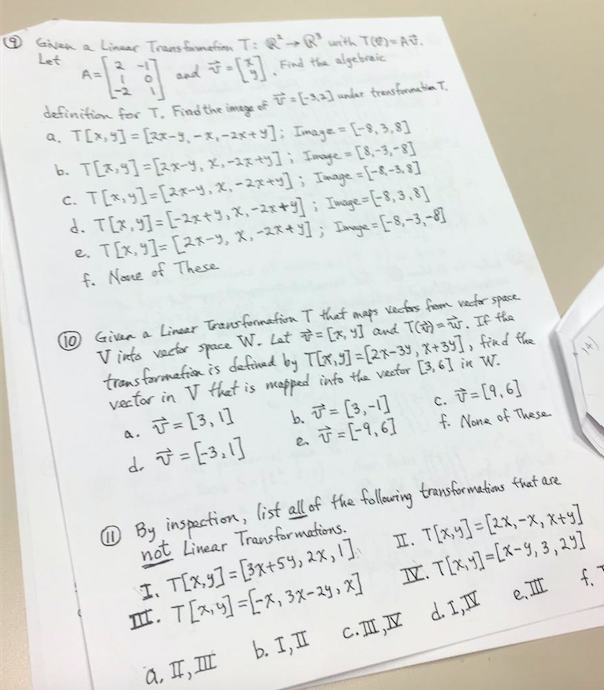 (9) Given a Linear Transformation T: R² → R³ with T(v⃗)=Av⃗.
Let A = [2 -1; 1 0; -2 1] and v⃗ = [x; y]. Find the algebraic
definition for T. Find the image of v⃗ = [-3,2] under transformation T.
a. T[x,y] = [2x-y, -x, -2x+y]; Image = [-8,3,8]
b. T[x,y] = [2x-y, x, -2x+y]; Image = [8,-3,-8]
c. T[x,y] = [2x-y, x, -2x+y]; Image = [-8,-3,8]
d. T[x,y] = [-2x+y, x, -2x+y]; Image = [-8,3,8]
e. T[x,y] = [2x-y, x, -2x+y]; Image = [-8,-3,-8]
f. None of These
(10) Given a Linear Transformation T that maps vectors from vector space
V into vector space W. Let v⃗ = [x, y] and T(v⃗) = w⃗. If the
transformation is defined by T[x,y] = [2x-3y, x+3y], find the
vector in V that is mapped into the vector [3,6] in W.
a. v⃗ = [3,1] b. v⃗ = [3,-1] c. v⃗ = [9,6]
d. v⃗ = [-3,1] e. v⃗ = [-9,6] f. None of These
(11) By inspection, list all of the following transformations that are
not Linear Transformations.
I. T[x,y] = [3x+5y, 2x, 1] II. T[x,y] = [2x, -x, x+y]
III. T[x,y] = [-x, 3x-2y, x] IV. T[x,y] = [x-y, 3, 2y]
a. II, III b. I, II c. III, IV d. I, IV e. III f.
14)